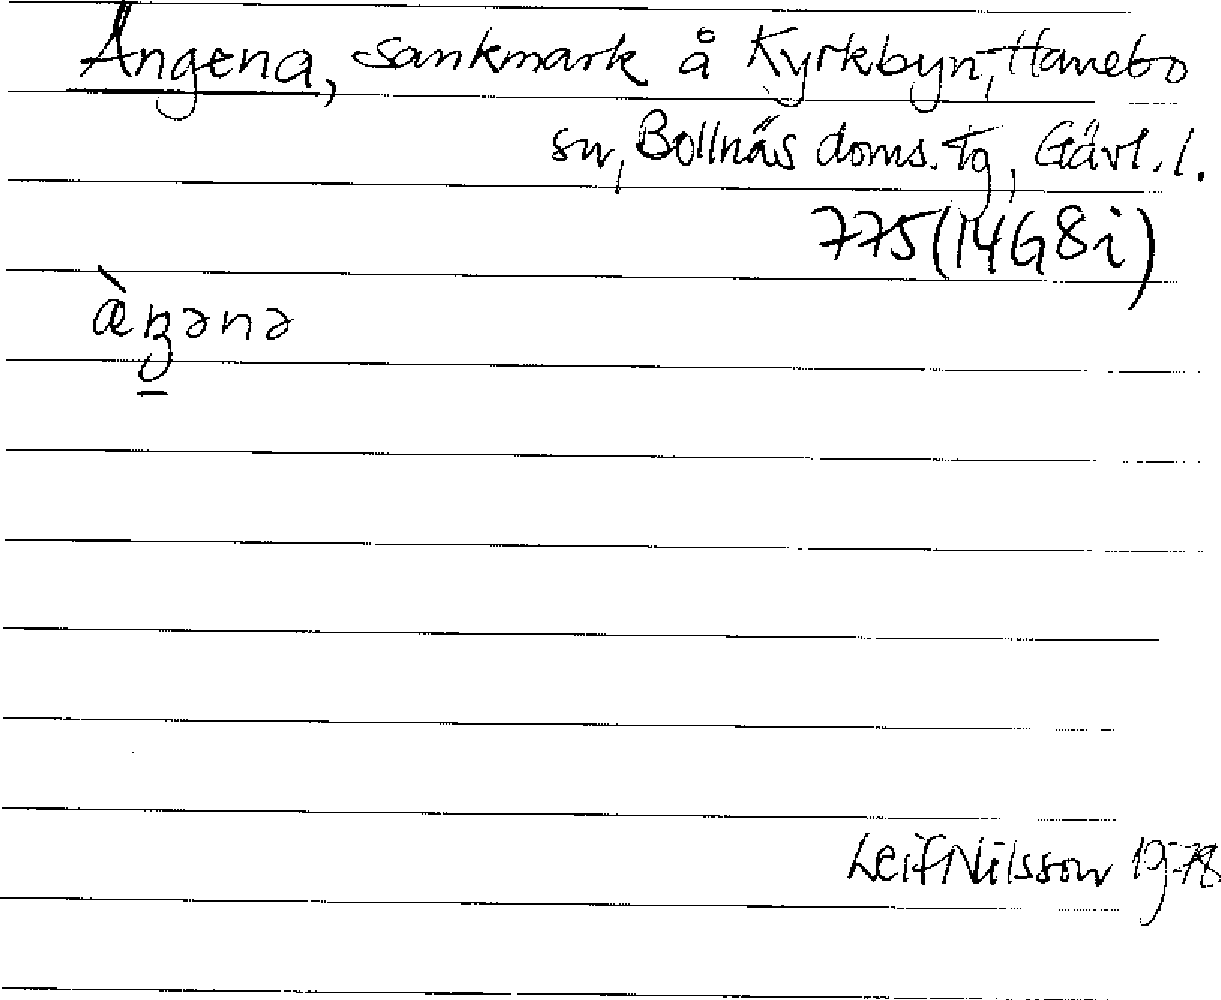 Ängena, sankmark å Kyrkbyn, Hanebo
sn, Bollnäs doms. tg, Gävl. l.
775(14G8i)
æ̀ŋənə
Leif Nilsson 1978